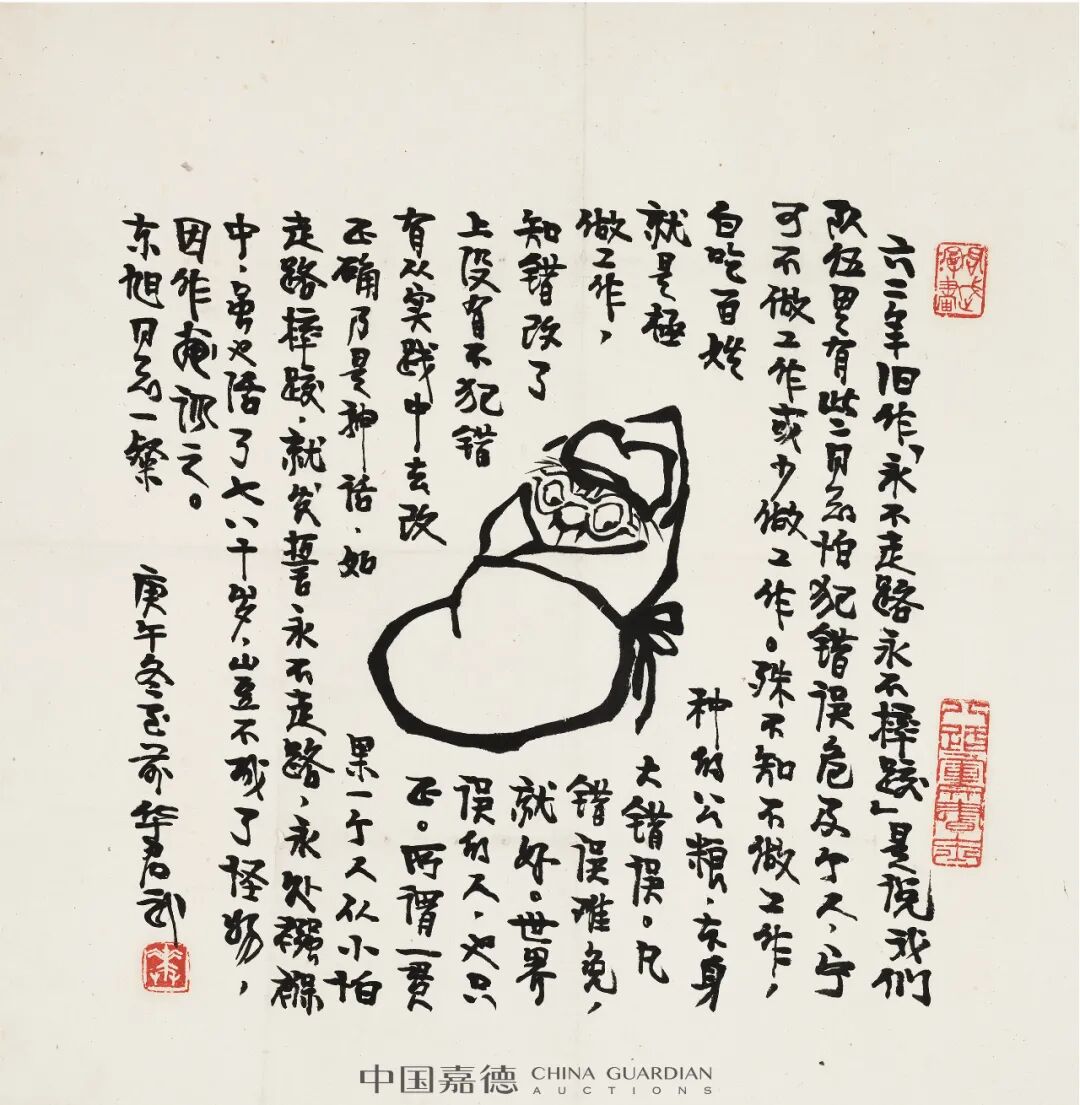 六二年旧作「永不走路永不摔跤」是说我们
队伍里有些同志怕犯错误危及个人，宁
可不做工作或少做工作。殊不知不做工作，
白吃百姓种的公粮，本身
就是極大错误。凡
做工作，错误难免，
知错改了就好。世界
上没有不犯错误的人，也只
有从实践中去改正。所谓一贯
正确乃是神话，如果一个人从小怕
走路摔跤，就发誓永不走路，永处襁褓
中，虽也活了七八十岁，岂不成了怪物，
因作画讽之。
东旭同志一粲
庚午冬至前华君武
中国嘉德 CHINA GUARDIAN
AUCTIONS